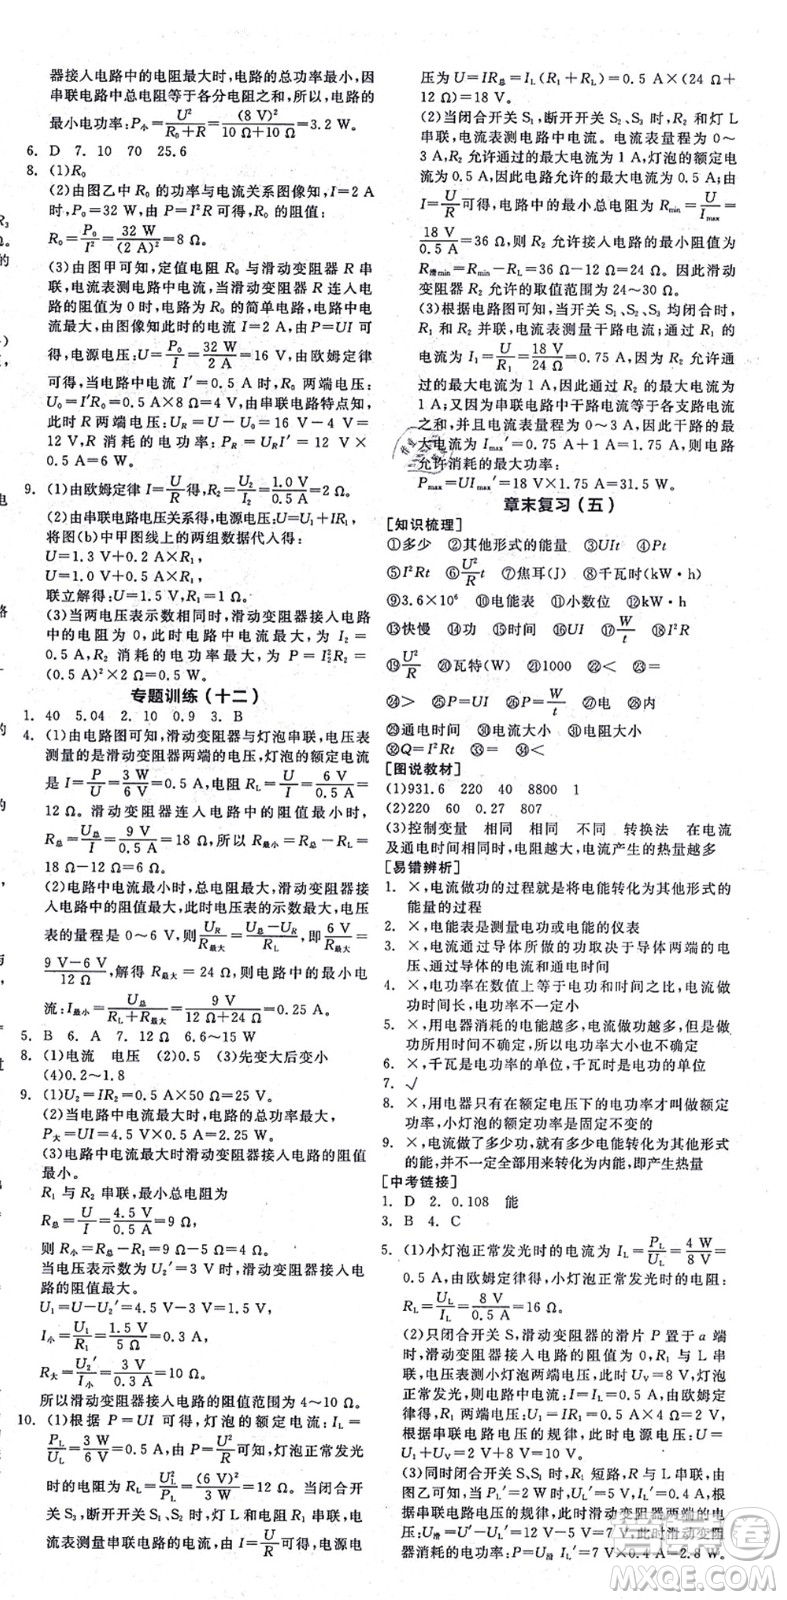 器接入电路中的电阻最大时,电路的总功率最小,因
串联电路中总电阻等于各分电阻之和,所以,电路的
最小电功率:P小=U²/(R₀+R)=(8 V)²/(10 Ω+10 Ω)=3.2 W。
6. D 7. 10 70 25.6
8. (1)R₀
(2)由图乙中 R₀ 的功率与电流关系图像知,I=2 A
时,P₀=32 W,由 P=I²R 可得,R₀ 的阻值:
R₀=P₀/I²=32 W/(2 A)²=8 Ω。
(3)由图甲可知,定值电阻 R₀ 与滑动变阻器 R 串
联,电流表测电路中电流,当滑动变阻器 R 连入电
路的阻值为 0 时,电路为 R₀ 的简单电路,电路中电
流最大,由图像知此时的电流 I=2 A,由 P=UI 可
得,电源电压:U=P₀/I=32 W/2 A=16 V,由欧姆定律
可得,当电路中的电流 I′=0.5 A 时,R₀ 两端电压:
U₀=I′R₀=0.5 A×8 Ω=4 V,由串联电路特点知,
此时 R 两端电压:U_R=U-U₀=16 V-4 V=
12 V,R 消耗的电功率:P_R=U_R I′=12 V×
0.5 A=6 W。
9. (1)由欧姆定律 I=U/R 得,R₂=U₂/I₂=1.0 V/0.5 A=2 Ω。
(2)由串联电路电压关系得,电源电压:U=U₂+IR₁,
将图(b)中甲图线上的两组数据代入得:
U=1.3 V+0.2 A×R₁,
U=1.0 V+0.5 A×R₁,
联立解得:R₁=1 Ω。
(3)当两电压表示数相同时,滑动变阻器接入电路
中的电阻为 0,此时电路中的电流为 I₂=
0.5 A,R₂ 消耗的电功率为 P=I₂²R₂=
(0.5 A)²×2 Ω=0.5 W。
专题训练(十二)
1. 40 5.04 2. 10 0.9 3. B
4. (1)由电路图可知,滑动变阻器与灯泡串联,电压表
测量的是滑动变阻器两端的电压,灯泡的额定电流
是 I=P/U=3 W/6 V=0.5 A,电阻 R_L=U/I=6 V/0.5 A=
12 Ω。滑动变阻器连入电路中的阻值最小时,
R总=U总/I=9 V/0.5 A=18 Ω,所以 R最小=R总-R_L=
18 Ω-12 Ω=6 Ω。
(2)电路中电流最小时,总电阻最大,滑动变阻器接
入电路的电阻最大,电压表的示数最大,由于电压
表的量程是 0~6 V,则U_R/R最大=(U总-U_R)/R_L,即6 V/R最大=
(9 V-6 V)/12 Ω,解得 R最大=24 Ω,则电路中的最小电
流:I最小=U总/(R_L+R最大)=9 V/(12 Ω+24 Ω)=0.25 A。
5. B 6. A 7. 12 Ω 6.6~15 W
8. (1)电流 电压 (2)0.5 (3)先变大后变小
(4)0.2~1.8
9. (1)U₂=IR₂=0.5 A×50 Ω=25 V。
(2)当电路中电流最大时,电路的总功率最大,
P大=UI=4.5 V×0.5 A=2.25 W。
(3)电路中电流最大时滑动变阻器接入电路的阻值
最小。
R₁ 与 R₂ 串联,最小总电阻为
R总=U/I=4.5 V/0.5 A=9 Ω,
则 R小=R总-R₁=9 Ω-5 Ω=4 Ω。
当电压表示数为 U₂′=3 V 时,滑动变阻器接入电
路的阻值最大。
U₁=U-U₂′=4.5 V-3 V=1.5 V,
I小=U₁/R₁=1.5 V/5 Ω=0.3 A,
R大=U₂′/I小=3 V/0.3 A=10 Ω。
所以滑动变阻器接入电路的阻值范围为 4~10 Ω。
10. (1)根据 P=UI 可得,灯泡的额定电流:I_L=
P_L/U_L=3 W/6 V=0.5 A,由 P=U²/R可知,灯泡正常发光
时的电阻:R_L=U_L²/P_L=(6 V)²/3 W=12 Ω。当闭合开
关 S₃,断开开关 S₁、S₂ 时,灯 L 和电阻 R₁ 串联,电
流表测量串联电路电流,由 I=U/R可得,电源电
压为 U=IR总=I_L(R₁+R_L)=0.5 A×(24 Ω+
12 Ω)=18 V。
(2)当闭合开关 S₁,断开开关 S₂、S₃ 时,R₂ 和灯 L
串联,电流表测电路中电流。电流表的量程为 0~
3 A,R₂ 允许通过的最大电流为 1 A,灯泡的额定电
流为 0.5 A,因此电路允许的最大电流为 0.5 A。由
I=U/R可得,电路中的最小总电阻 Rmin=U/Imax=
18 V/0.5 A=36 Ω,则 R₂ 允许接入电路的最小阻值为
R滑min=Rmin-R_L=36 Ω-12 Ω=24 Ω。因此滑动
变阻器 R₂ 允许的取值范围为 24~30 Ω。
(3)根据电路图可知,当开关 S₁、S₂、S₃ 均闭合时,
R₁ 和 R₂ 并联,电流表测量干路电流,通过 R₁ 的
电流为 I₁=U/R₁=18 V/24 Ω=0.75 A,R₂ 允许通
过的最大电流为 1 A,因此此支路的最大电流为
1 A,又因为并联电路中干路电流等于各支路电流
之和,且电流表的量程为 0~3 A,因此干路的最
大电流 Imax′=0.75 A+1 A=1.75 A,则电路
允许消耗的最大功率:
Pmax=UImax′=18 V×1.75 A=31.5 W。
章末复习(五)
[知识梳理]
①多少 ②其他形式的能量 ③UIt ④Pt
⑤I²Rt ⑥U²/R t ⑦焦耳(J) ⑧千瓦时(kW·h)
⑨3.6×10⁶ ⑩电能表 ⑪小数位 ⑫kW·h
⑬快慢 ⑭功 ⑮时间 ⑯UI ⑰W/t ⑱I²R
⑲U²/R ⑳瓦特(W) ㉑额定 ㉒= ㉓<
㉔> ㉕P=UI ㉖P=W/t ㉗电流 ㉘电阻
㉙通电时间 ㉚电流大小 ㉛电阻大小
㉜Q=I²Rt ㉝= ㉞<
[图说教材]
(1)931.6 220 40 8800 1
(2)220 60 0.27 807
(3)控制变量 相同 相同 不同 转换法 在电流
及通电时间相同时,电阻越大,电流产生的热量越多
[易错辨析]
1. ×,电流做功的过程就是将电能转化为其他形式的
能量的过程
2. ×,电能表是测量电功或电能的仪表
3. ×,电流通过导体所做的功取决于导体两端的电
压、电流及通电时间
4. ×,电功率在数值上等于电功和时间之比,电流做
功时间长,电功率不一定小
5. ×,用电器消耗的电能越多,电流做功越多,但因为
做功所用时间不确定,所以功率不一定越大
6. ×,千瓦是电功率的单位,千瓦时是电功的单位
7. √
8. ×,用电器只有在额定电压下的电功率才叫做额定
功率,实际功率不是固定不变的
9. ×,电流做了多少功,就有多少电能转化为其他形式
的能,并不一定全部用来转化为内能,即产生热量
[中考链接]
1. D 2. 0.108 能
3. B 4. C
5. (1)小灯泡正常发光时的电流为 I_L=P_L/U_L=4 W/8 V=
0.5 A,由欧姆定律得,小灯泡正常发光时的电阻:
R_L=U_L/I_L=8 V/0.5 A=16 Ω。
(2)只闭合开关 S,滑动变阻器的滑片 P 置于 a 端
时,滑动变阻器接入电路的阻值为零,R₁ 与小灯泡
L 串联,此时电压表测小灯泡两端电压 U_V=8 V,小灯
泡正常发光,所以电路中电流 I=0.5 A,由欧姆定
律得,R₁ 两端电压:U₁=IR₁=0.5 A×4 Ω=2 V,
根据串联电路电压的规律,电源电压:U=
U₁+U_V=2 V+8 V=10 V。
(3)同时闭合开关 S、S₁ 时,R₁ 短路,R 与 L 串联,
由图乙可知,当 U_L′=3 V 时,电流 I_L′=0.4 A,根据
串联电路电压的规律,此时滑动变阻器两端的电
压:U滑=U-U_L′=10 V-3 V=7 V,此时滑动变阻
器消耗的电功率:P=U滑 I_L′=7 V×0.4 A=2.8 W。
MXQE.COM